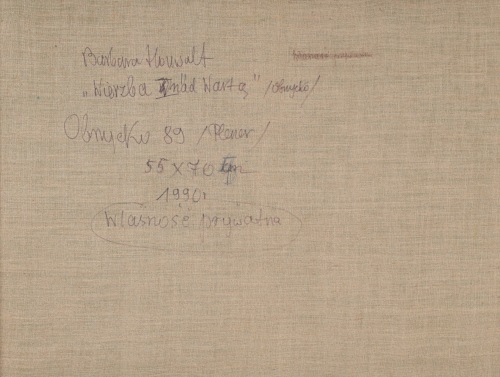 Barbara Houwalt
„Wierzba II nad Wartą" /Obrzycko/
Obrzycko 89 /Plener/
55 x 70 cm
1990r
Własność prywatna